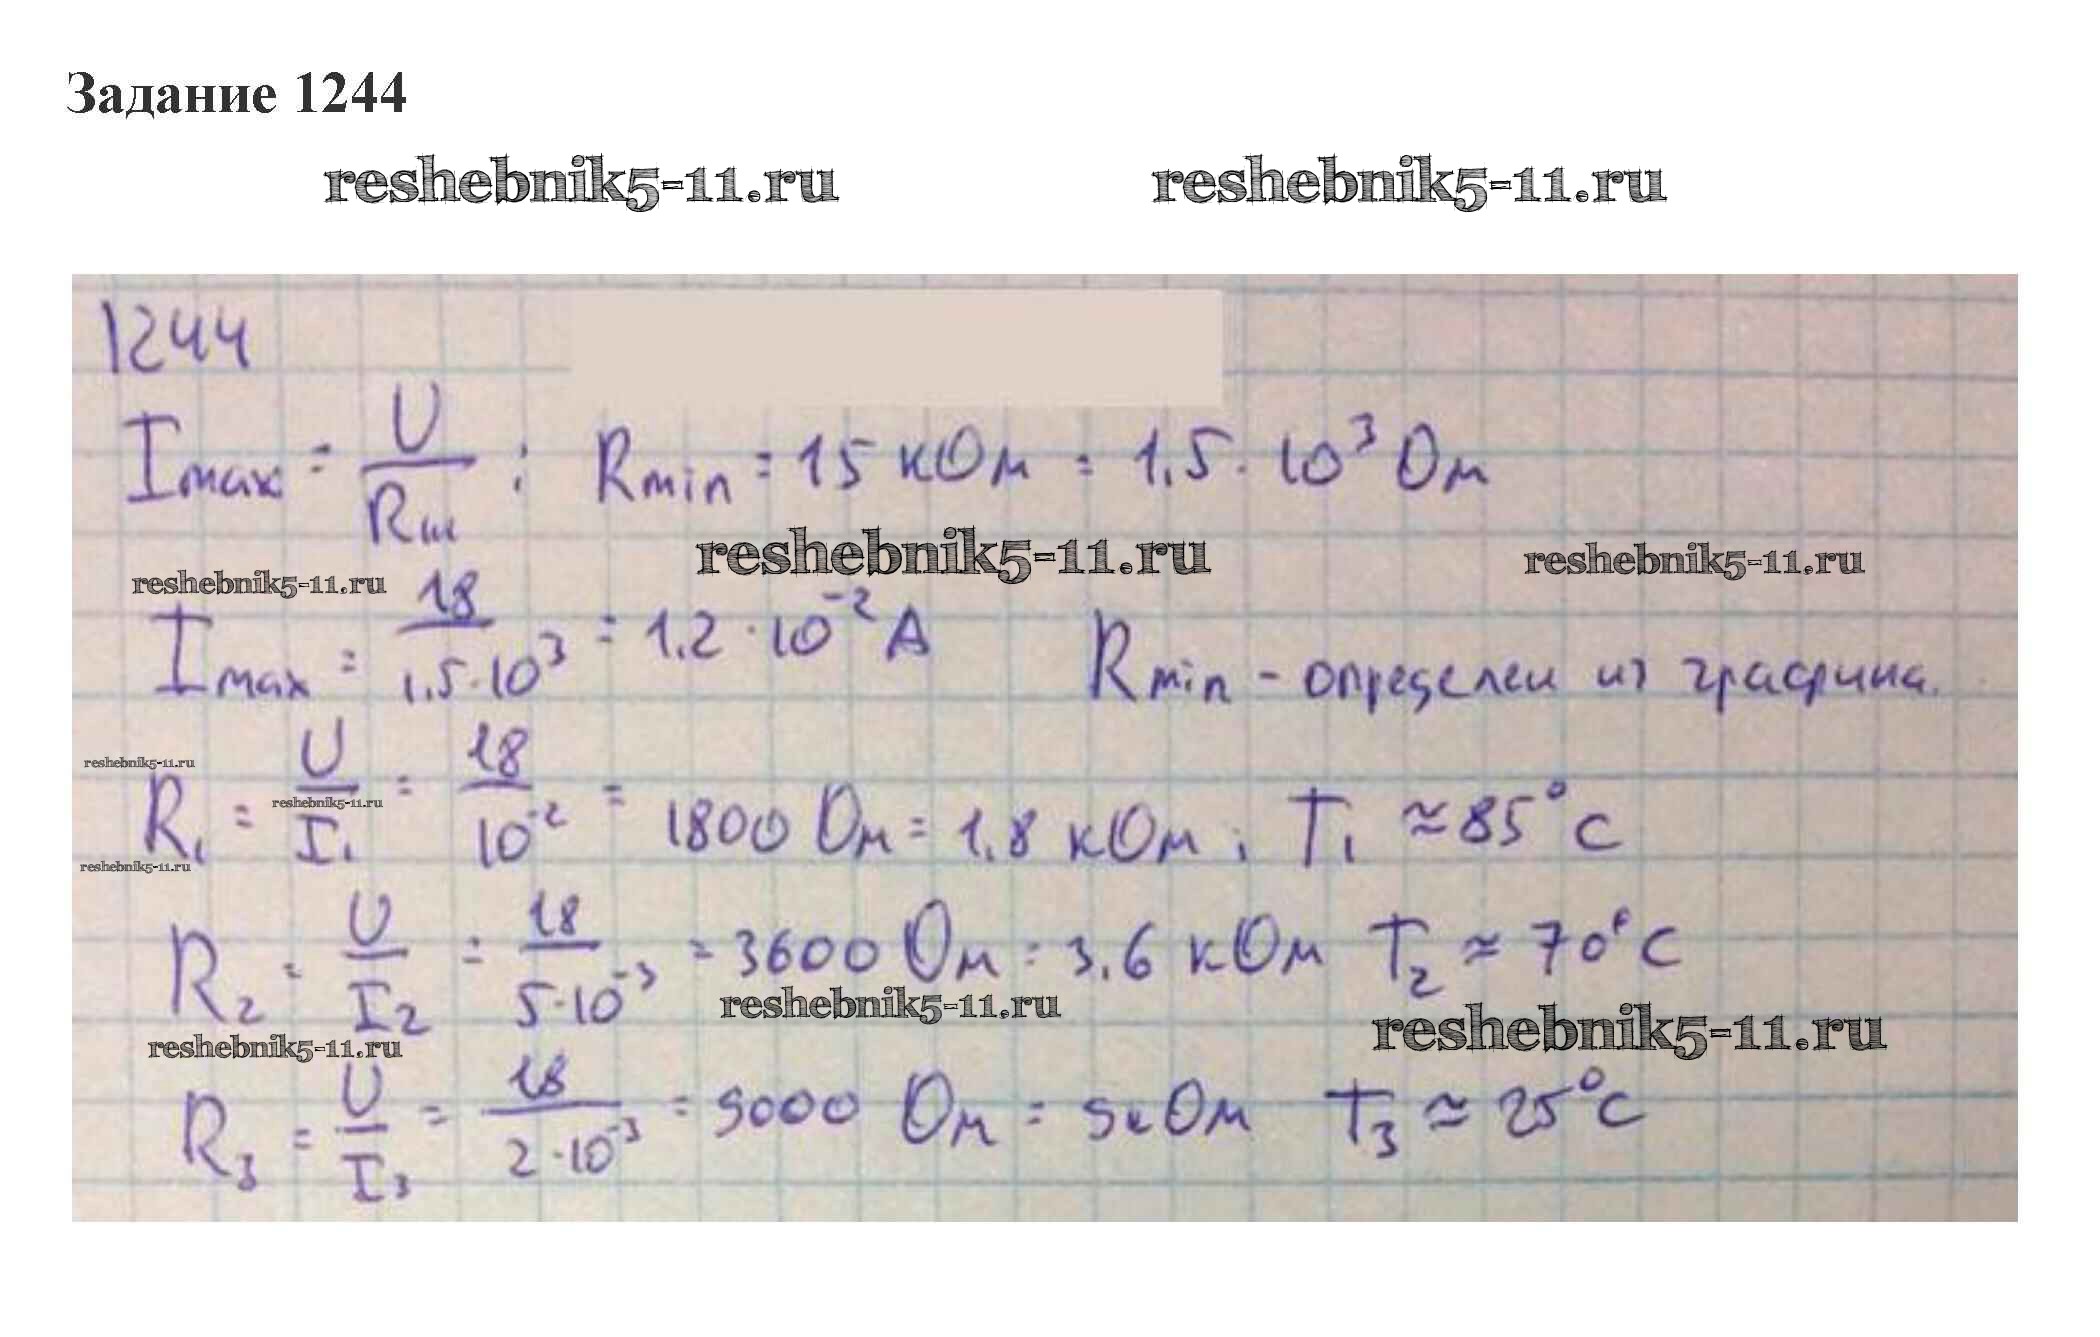 Задание 1244
reshebnik5-11.ru reshebnik5-11.ru
1244
Imax = U / Rm ; Rmin = 15 кОм = 1,5 · 10³ Ом
reshebnik5-11.ru reshebnik5-11.ru
reshebnik5-11.ru
Imax = 18 / 1,5·10³ = 1,2 · 10⁻² А Rmin - определен из графика.
reshebnik5-11.ru
R₁ = U / I₁ = 18 / 10⁻² = 1800 Ом = 1,8 кОм ; T₁ ≈ 85°C
reshebnik5-11.ru
reshebnik5-11.ru
R₂ = U / I₂ = 18 / 5·10⁻³ = 3600 Ом = 3,6 кОм T₂ ≈ 70°C
reshebnik5-11.ru reshebnik5-11.ru
reshebnik5-11.ru
R₃ = U / I₃ = 18 / 2·10⁻³ = 9000 Ом = 9кОм T₃ ≈ 25°C